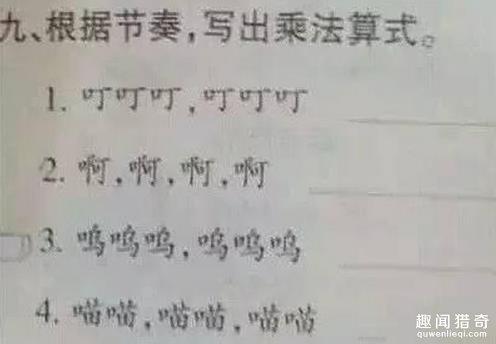 九、根据节奏,写出乘法算式。
1. 叮叮叮,叮叮叮
2. 啊,啊,啊,啊
3. 呜呜呜,呜呜呜
4. 喵喵,喵喵,喵喵
趣闻猎奇
quwenlieqi.com